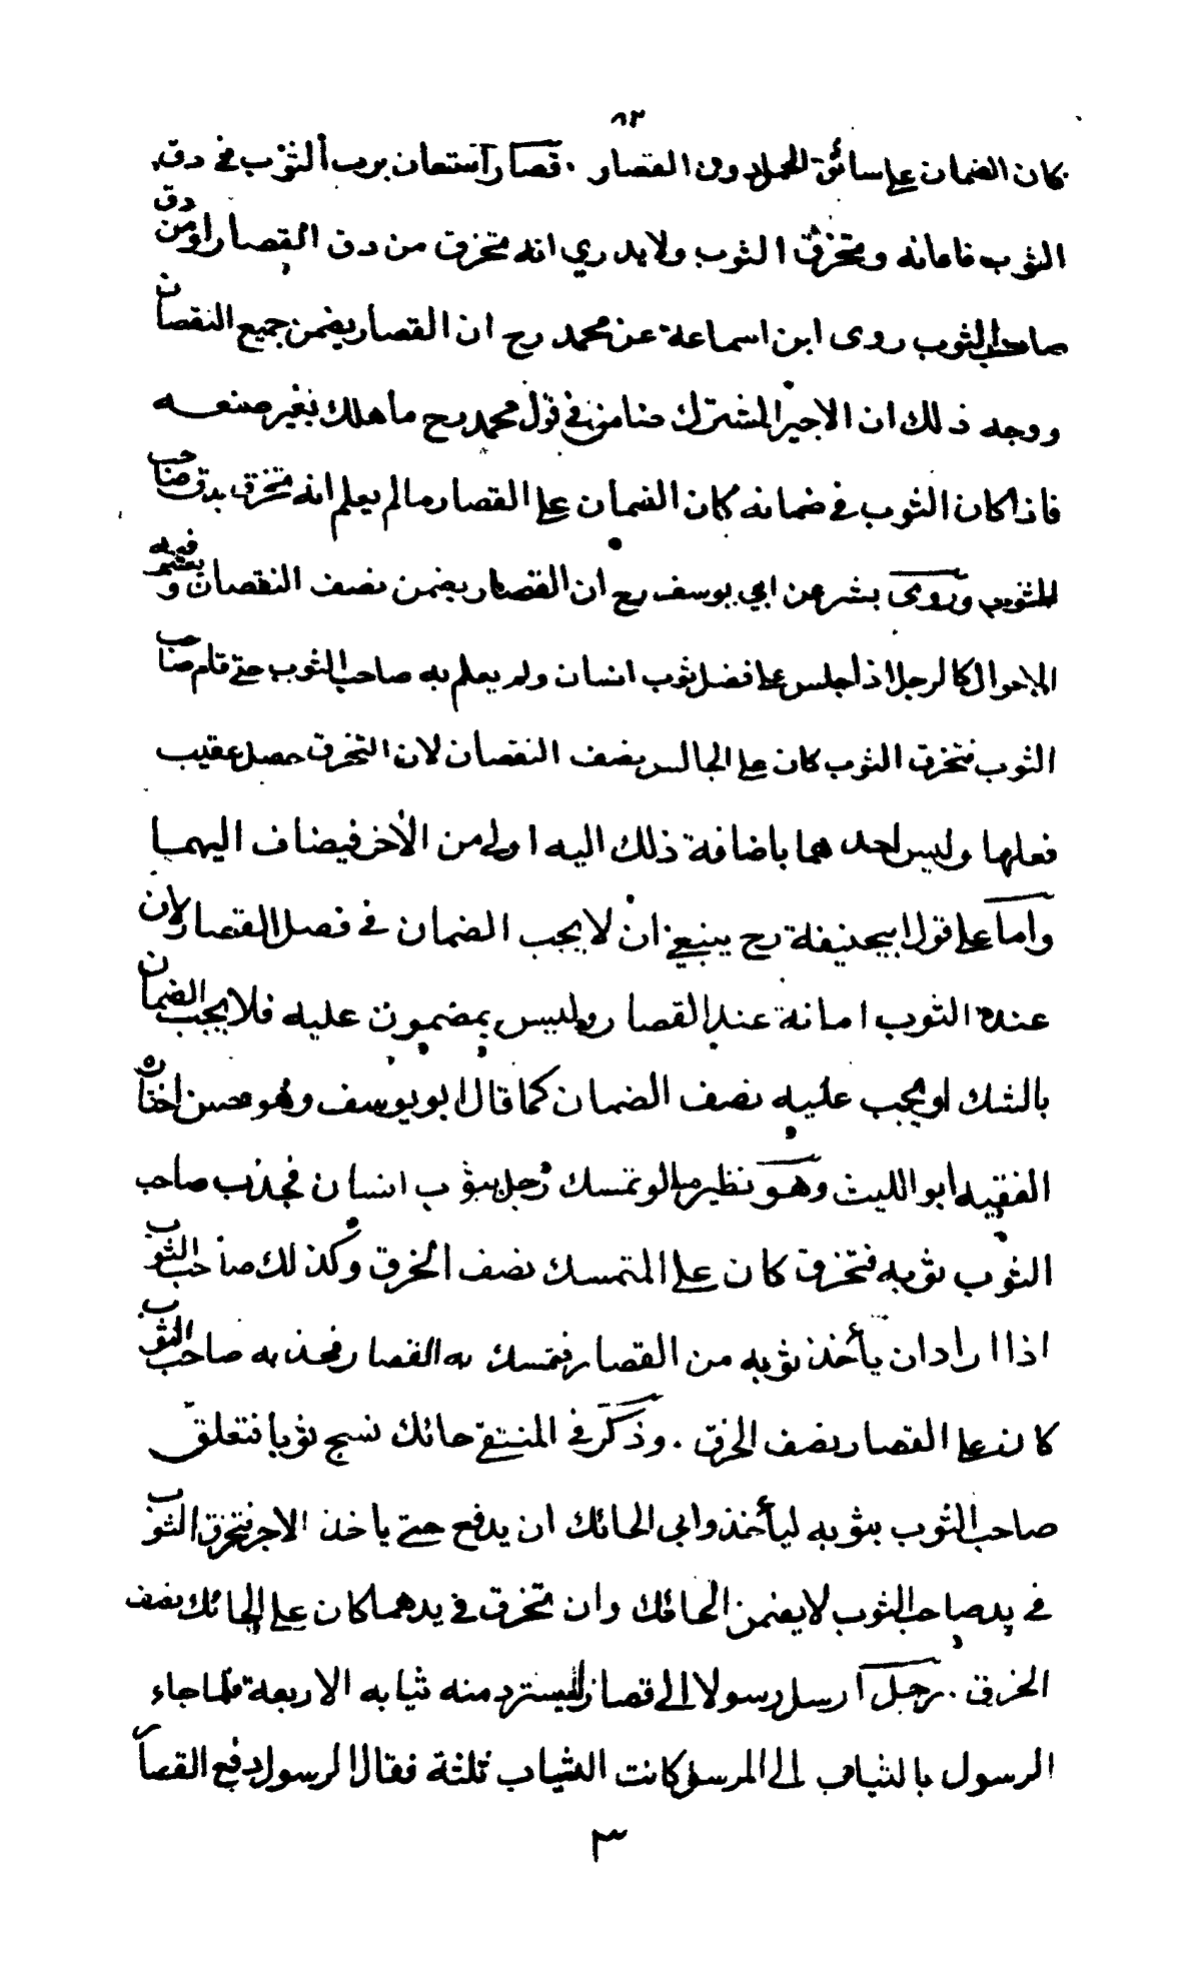 ٨٣
كان الضمان على سائق الحمل دون القصار . قصار استعان برب الثوب في دق
الثوب فاعانه وتخرق الثوب ولا يدري انه تخرق من دق القصار او من دق
صاحب الثوب روى ابن اسماعة عن محمد رح ان القصار يضمن جميع النقصان
ووجه ذلك ان الاجير المشترك ضامن في قول محمد رح ما هلك بغير صنعه
فاذا كان الثوب في ضمانه كان الضمان على القصار مالم يعلم انه تخرق بدق صاحب
الثوب وروى بشر عن ابي يوسف رح ان القصار يضمن نصف النقصان ويعتبر فيه
الاحوال كالرجل اذا جلس على فضل ثوب انسان ولم يعلم به صاحب الثوب حتى قام صاحب
الثوب فتخرق الثوب كان على الجالس نصف النقصان لان التخرق حصل عقيب
فعلها وليس احدهما باضافة ذلك اليه اولى من الأخر فيضاف اليهما
واما على قول ابيحنيفة رح ينبغي ان لا يجب الضمان في فصل القصار لان
عنده الثوب امانة عند القصار وليس بمضمون عليه فلا يجب الضمان
بالشك او يجب عليه نصف الضمان كما قال ابو يوسف وهو حسن اختاره
الفقيه ابو الليث وهو نظير ما لو تمسك رجل بثوب انسان فجذب صاحب
الثوب ثوبه فتخرق كان على المتمسك نصف الخرق وكذلك صاحب الثوب
اذا اراد ان يأخذ ثوبه من القصار فتمسك به القصار فجذبه صاحب الثوب
كان على القصار نصف الخرق . وذكر في المنتقى حائك نسج ثوبا فتعلق
صاحب الثوب بثوبه ليأخذ وابى الحائك ان يدفع حتى ياخذ الاجر فتخرق الثوب
في يد صاحب الثوب لا يضمن الحائك وان تخرق في يدهما كان على الحائك نصف
الخرق . رجل ارسل رسولا الى قصار ليسترد منه ثيابه الاربعة فلما جاء
الرسول بالثياب الى المرسل كانت الثياب ثلثة فقال الرسول دفع القصار
٣